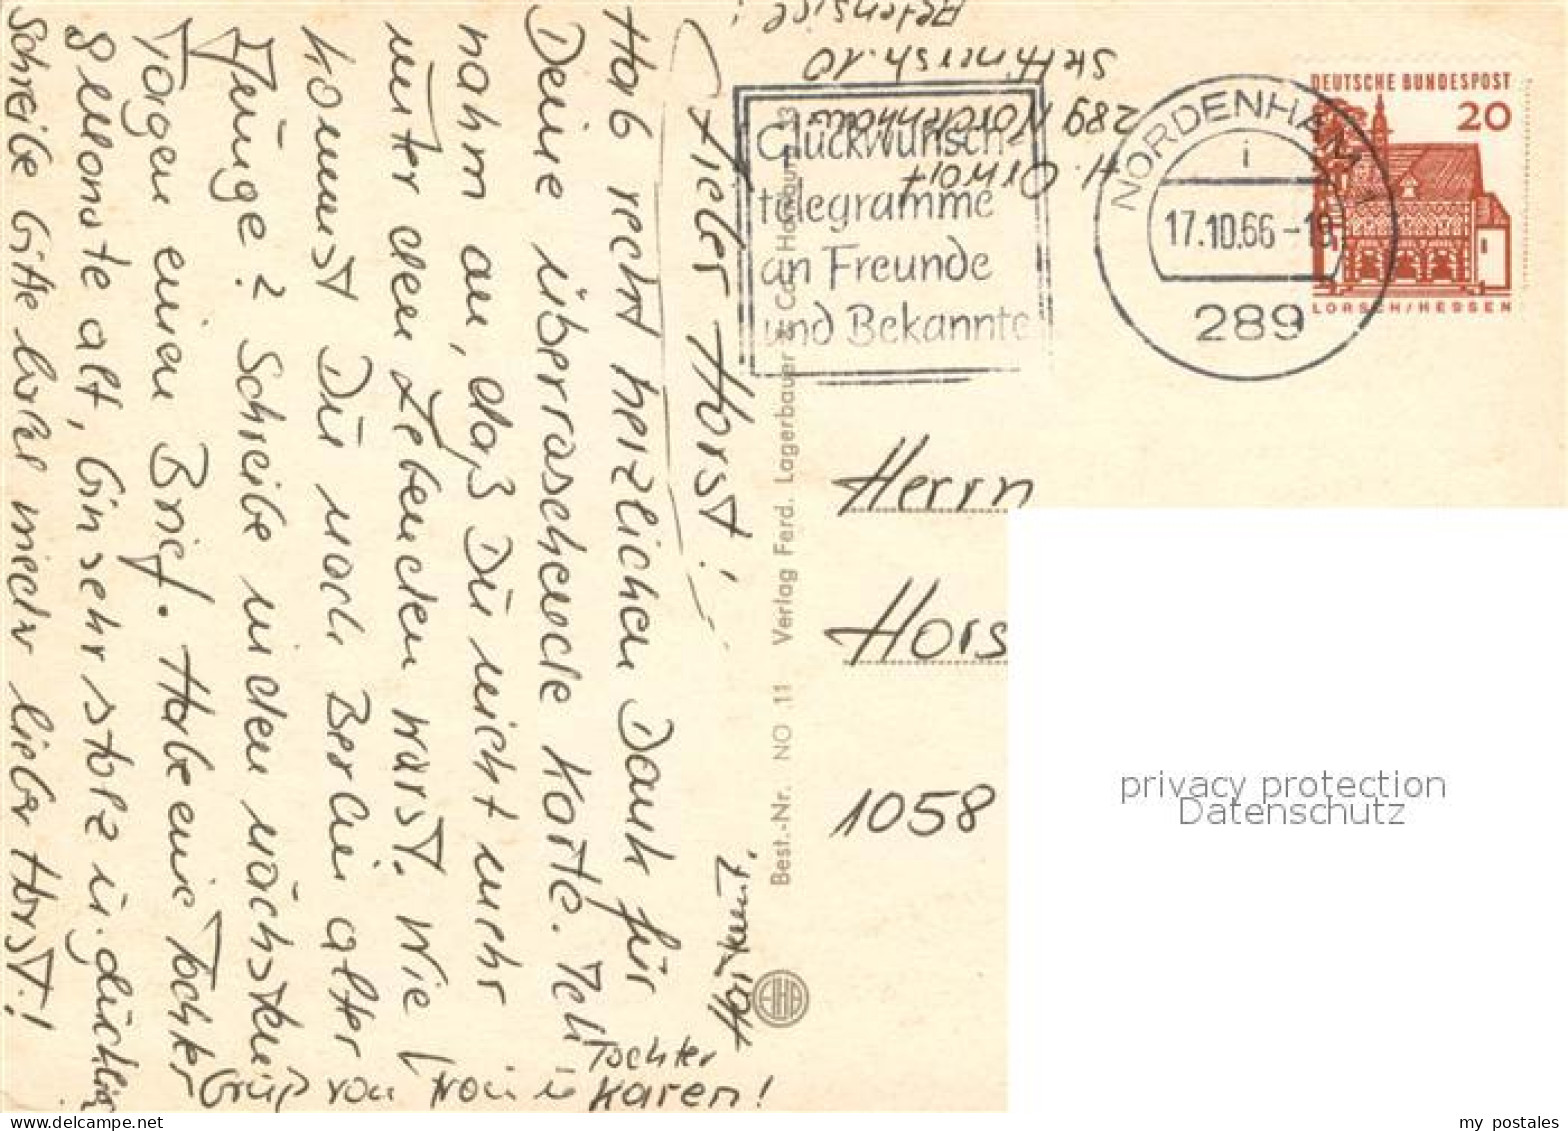 Lieber Horst!
Hab recht herzlichen Dank für
Deine überraschende Karte. Ich
nahm an, daß Du nicht mehr
unter den Lebenden warst. Wie
kommst Du nach Berlin alter
Junge? Schreibe in den nächsten
Tagen einen Brief. Habe eine Tochter
8 Monate alt, bin sehr stolz u. glücklich
Schreibe bitte bald wieder lieber Horst!
Gruß von Frau u. Tochter
Karen!
Helmut.
Absender:
Stettinerstr. 10
289 Nordenham
H.
Glückwunsch-
telegramme
an Freunde
und Bekannte
NORDENHAM 1
i
17.10.66-18
289
DEUTSCHE BUNDESPOST
20
LORSCH/HESSEN
Best.-Nr. NO 11 Verlag Ferd. Lagerbauer & Co., Hamburg 23
Herrn
Hors
1058
privacy protection
Datenschutz
my postales